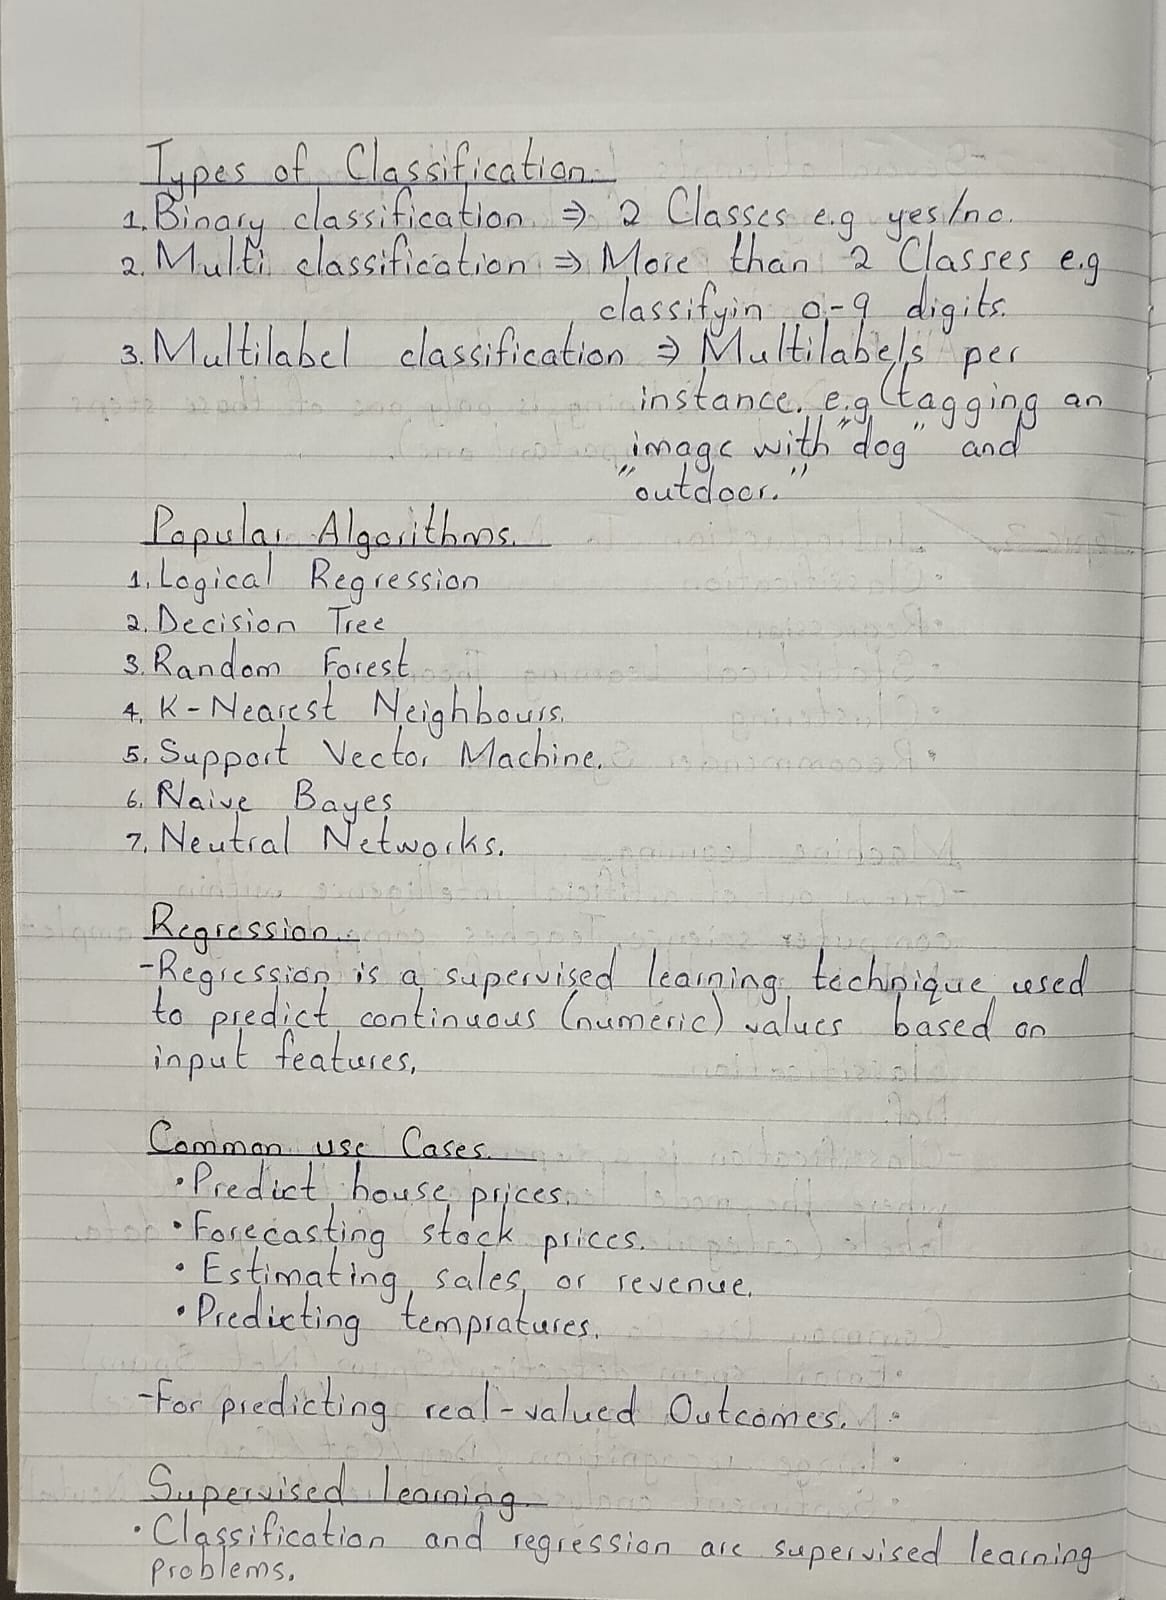 Types of Classification.
1. Binary classification ⇒ 2 Classes e.g yes/no.
2. Multi classification ⇒ More than 2 Classes e.g
classifyin 0-9 digits.
3. Multilabel classification ⇒ Multilabels per
instance. e.g (tagging an
image with "dog" and
"outdoor."
Popular Algorithms.
1. Logical Regression
2. Decision Tree
3. Random Forest
4. K-Nearest Neighbours.
5. Support Vector Machine.
6. Naive Bayes
7. Neutral Networks.
Regression.
-Regression is a supervised learning technique used
to predict continuous (numeric) values based on
input features,
Common use Cases.
• Predict house prices.
• Forecasting stock prices.
• Estimating sales or revenue.
• Predicting tempratures.
-For predicting real-valued Outcomes.
Supervised learning
• Classification and regression are supervised learning
problems.